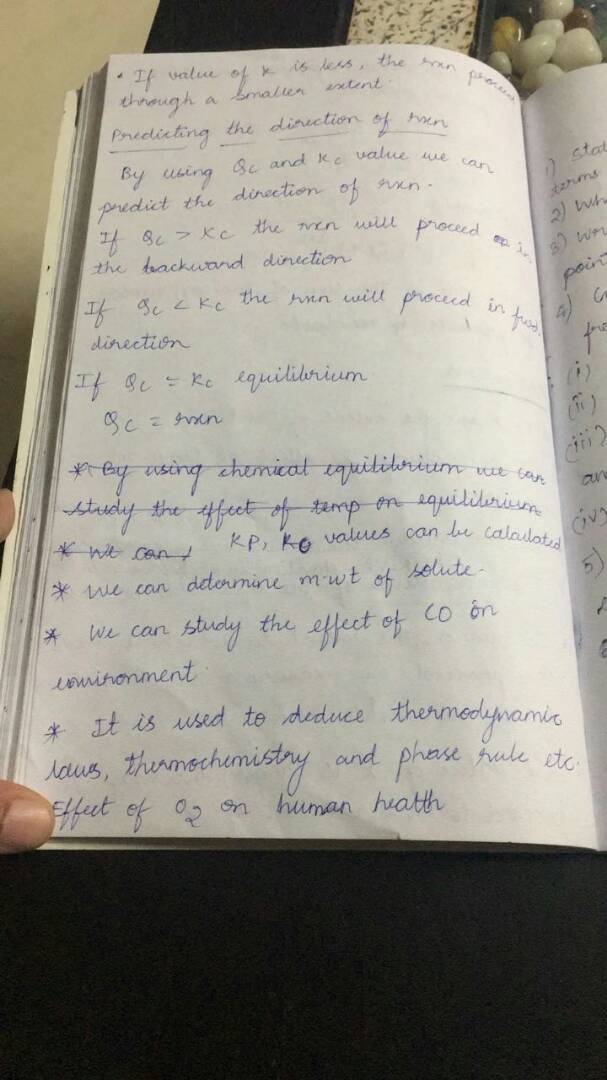 • If value of K is less, the rxn proceed
through a smaller extent.
Predicting the direction of rxn
By using Qc and Kc value we can
predict the direction of rxn.
If Qc > Kc the rxn will proceed in
the backward direction
If Qc < Kc the rxn will proceed in
direction
If Qc = Kc equilibrium
Qc = rxn
* By using chemical equilibrium we can
study the effect of temp on equilibrium
* We can, KP, KC values can be calculated
* We can determine m.wt of solute.
* We can study the effect of CO on
environment.
* It is used to deduce thermodynamic
laws, thermochemistry and phase rule etc.
Effect of O2 on human health
1) Stat
terms
2) Wh
3)
point
4)
(i)
(ii)
(iii)
an
(iv)
5)